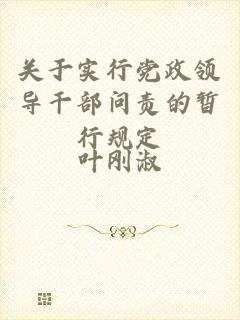 关于实行党政领
导干部问责的暂
行规定
叶刚淑